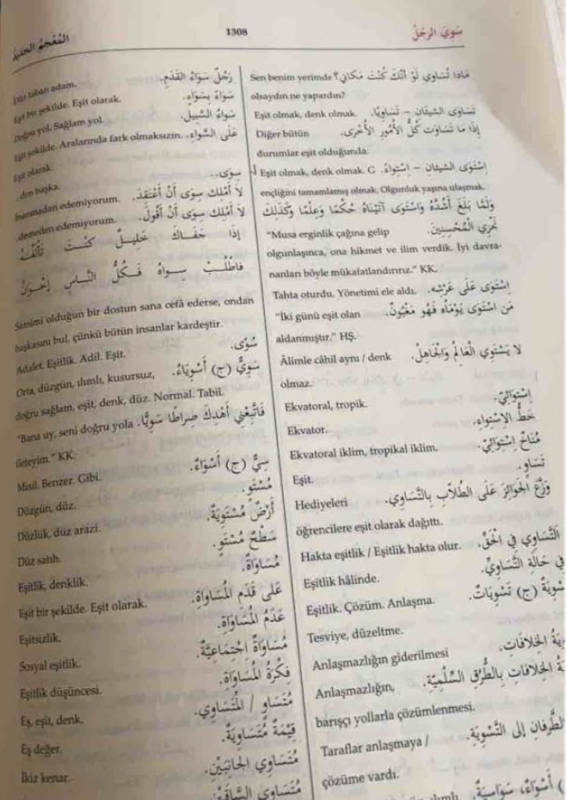 سَوِيَ الرَّجُلُ 1308 المُعْجَمُ
مَاذَا تُسَاوِي لَوْ أَنَّكَ كُنْتَ مَكَانِي؟ Sen benim yerimde
olsaydın ne yapardın?
تَسَاوَى الشَّيْئَانِ – تَسَاوِيًا. Eşit olmak, denk olmak.
إِذَا مَا تَسَاوَتْ كُلُّ الأُمُورِ الأُخْرَى. Diğer bütün
durumlar eşit olduğunda.
اِسْتَوَى الشَّيْئَانِ – اِسْتِوَاءً. G Eşit olmak, denk olmak.
ençliğini tamamlamış olmak. Olgunluk yaşına ulaşmak.
وَلَمَّا بَلَغَ أَشُدَّهُ وَاسْتَوَى آتَيْنَاهُ حُكْمًا وَعِلْمًا وَكَذَلِكَ
نَجْزِي الْمُحْسِنِينَ.
"Musa erginlik çağına gelip
olgunlaşınca, ona hikmet ve ilim verdik. İyi davra-
nanları böyle mükafatlandırırız." KK.
اِسْتَوَى عَلَى عَرْشِهِ. Tahta oturdu. Yönetimi ele aldı.
مَنِ اسْتَوَى يَوْمَاهُ فَهُوَ مَغْبُونٌ. "İki günü eşit olan
aldanmıştır." HŞ.
لا يَسْتَوِي الْعَالِمُ وَالْجَاهِلُ. Âlimle câhil aynı / denk
olmaz.
اِسْتِوَائِيٌّ. Ekvatoral, tropik.
خَطُّ الاِسْتِوَاءِ. Ekvator.
مُنَاخٌ اِسْتِوَائِيٌّ. Ekvatoral iklim, tropikal iklim.
تَسَاوٍ. Eşit.
وَزَّعَ الْجَوَائِزَ عَلَى الطُّلاَّبِ بِالتَّسَاوِي. Hediyeleri
öğrencilere eşit olarak dağıttı.
التَّسَاوِي فِي الْحَقِّ. Hakta eşitlik / Eşitlik hakta olur.
فِي حَالَةِ التَّسَاوِي. Eşitlik hâlinde.
(ج) تَسْوِيَاتٌ. Eşitlik. Çözüm. Anlaşma.
Tesviye, düzeltme.
الخِلافَاتِ. Anlaşmazlığın giderilmesi
الخِلافَاتِ بِالطُّرُقِ السِّلْمِيَّةِ. Anlaşmazlığın,
barışçı yollarla çözümlenmesi.
الطَّرفَانِ إِلَى التَّسْوِيَةِ. Taraflar anlaşmaya /
çözüme vardı.
أَسْوَاءٌ، سَوَاسِيَةٌ.
رَجُلٌ سَوَاءُ القَدَمِ. taban adam.
سَوَاءً بِسَوَاءٍ. bir şekilde. Eşit olarak.
سَوَاءُ السَّبِيلِ. Doğru yol. Sağlam yol.
عَلَى السَّوَاءِ. Eşit şekilde. Aralarında fark olmaksızın.
Eşit olarak.
سِوَى.. .den başka.
لاَ أَمْلِكُ سِوَى أَنْ أَعْتَقِدَ. inanmadan edemiyorum.
لاَ أَمْلِكُ سِوَى أَنْ أَقُولَ. demeden edemiyorum.
إِذَا جَفَاكَ خَلِيلٌ كُنْتَ تَأْلَفُهُ
فَاطْلُبْ سِوَاهُ فَكُلُّ النَّاسِ إِخْوَانُ
Samimi olduğun bir dostun sana cefâ ederse, ondan
başkasını bul, çünkü bütün insanlar kardeştir.
سُوًى. Adalet. Eşitlik. Adil. Eşit.
سَوِيٌّ (ج) أَسْوِيَاءُ. Orta, düzgün, ılımlı, kusursuz,
doğru sağlam, eşit, denk, düz. Normal. Tabiî.
فَاتَّبِعْنِي أَهْدِكَ صِرَاطًا سَوِيًّا. "Bana uy, seni doğru yola
ileteyim." KK.
سِيٌّ (ج) أَسْوَاءٌ. Misil. Benzer. Gibi.
مُسْتَوٍ. Düzgün, düz.
أَرْضٌ مُسْتَوِيَةٌ. Düzlük, düz arazi.
سَطْحٌ مُسْتَوٍ. Düz satıh.
مُسَاوَاةٌ. Eşitlik, denklik.
عَلَى قَدَمِ الْمُسَاوَاةِ. Eşit bir şekilde. Eşit olarak.
عَدَمُ الْمُسَاوَاةِ. Eşitsizlik.
مُسَاوَاةٌ اجْتِمَاعِيَّةٌ. Sosyal eşitlik.
فِكْرَةُ الْمُسَاوَاةِ. Eşitlik düşüncesi.
مُتَسَاوٍ / الْمُتَسَاوِي. Eş, eşit, denk.
قِيمَةٌ مُتَسَاوِيَةٌ. Eş değer.
مُتَسَاوِي الْجَانِبَيْنِ. İkiz kenar.
مُتَسَاوِي السَّاقَيْنِ.